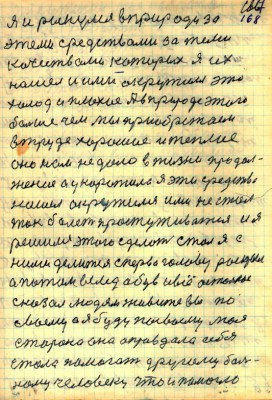 168
я и ринулся в природу за
этеми средствами за теми
качествами которых я их
нашел и ими окружил это
холод и плохие я в природе этого
больше чем мы приобретаем
в труде хорошие и теплие
оно нам не дало в жизни продол-
жение а укоротило я эти средства
нашел окружил ими не стал
так болет простуживатся и я
решил этого сделат стал я с
ними делится сперва голову раскрыл
а потом вслед обув и всё остальное
сказал людям живите вы по
своему а я буду по своему моя
сторона она оправдала себя
стала помогат другому бол-
ному человеку что и помогло